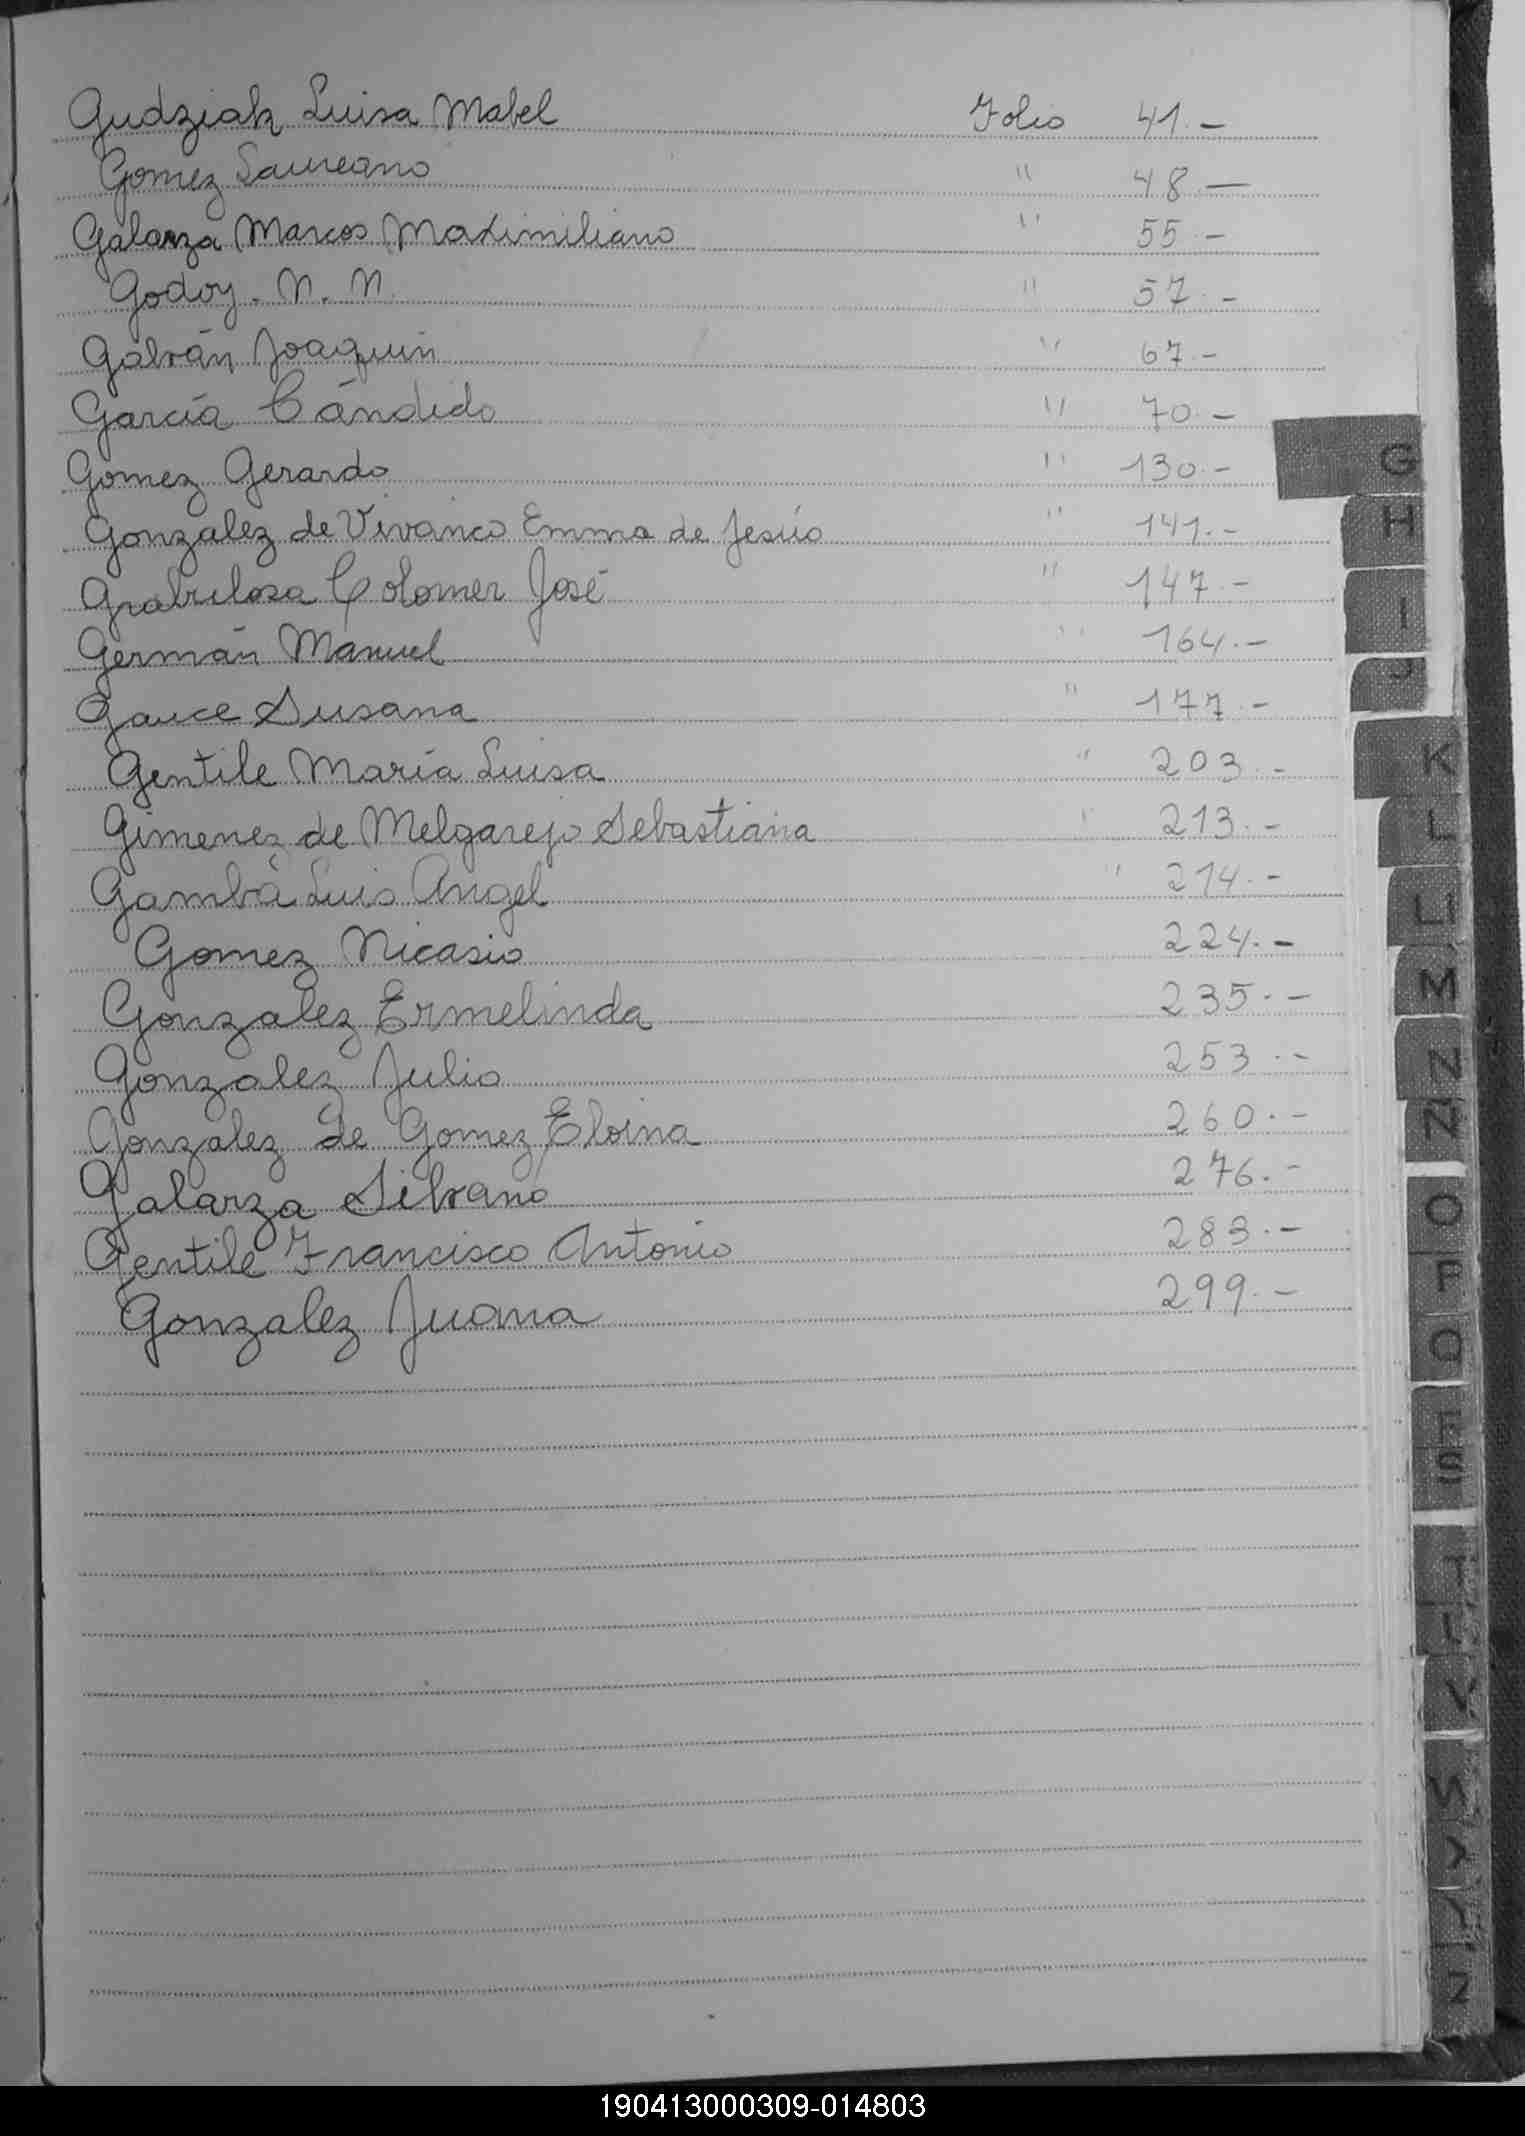 Gudziak Luisa Mabel Folio 41.-
Gomez Laureano " 48.-
Galarza Marcos Maximiliano " 55.-
Godoy. N. N. " 57.-
Galván Joaquin " 67.-
García Cándido " 70.-
Gomez Gerardo " 130.-
Gonzalez de Vivanco Emma de Jesús " 141.-
Grabulosa Colomer José " 147.-
Germán Manuel " 164.-
Gauce Susana " 177.-
Gentile María Luisa " 203.-
Gimenez de Melgarejo Sebastiana " 213.-
Gambá Luis Angel " 214.-
Gomez Nicasio 224.-
Gonzalez Ermelinda 235.-
Gonzalez Julio 253.-
Gonzalez de Gomez Eloina 260.-
Galarza Silvano 276.-
Gentile Francisco Antonio 283.-
Gonzalez Juana 299.-
G
H
I
J
K
L
Ll
M
N
Ñ
O
P
Q
R
S
T
V
Y
Z
190413000309-014803